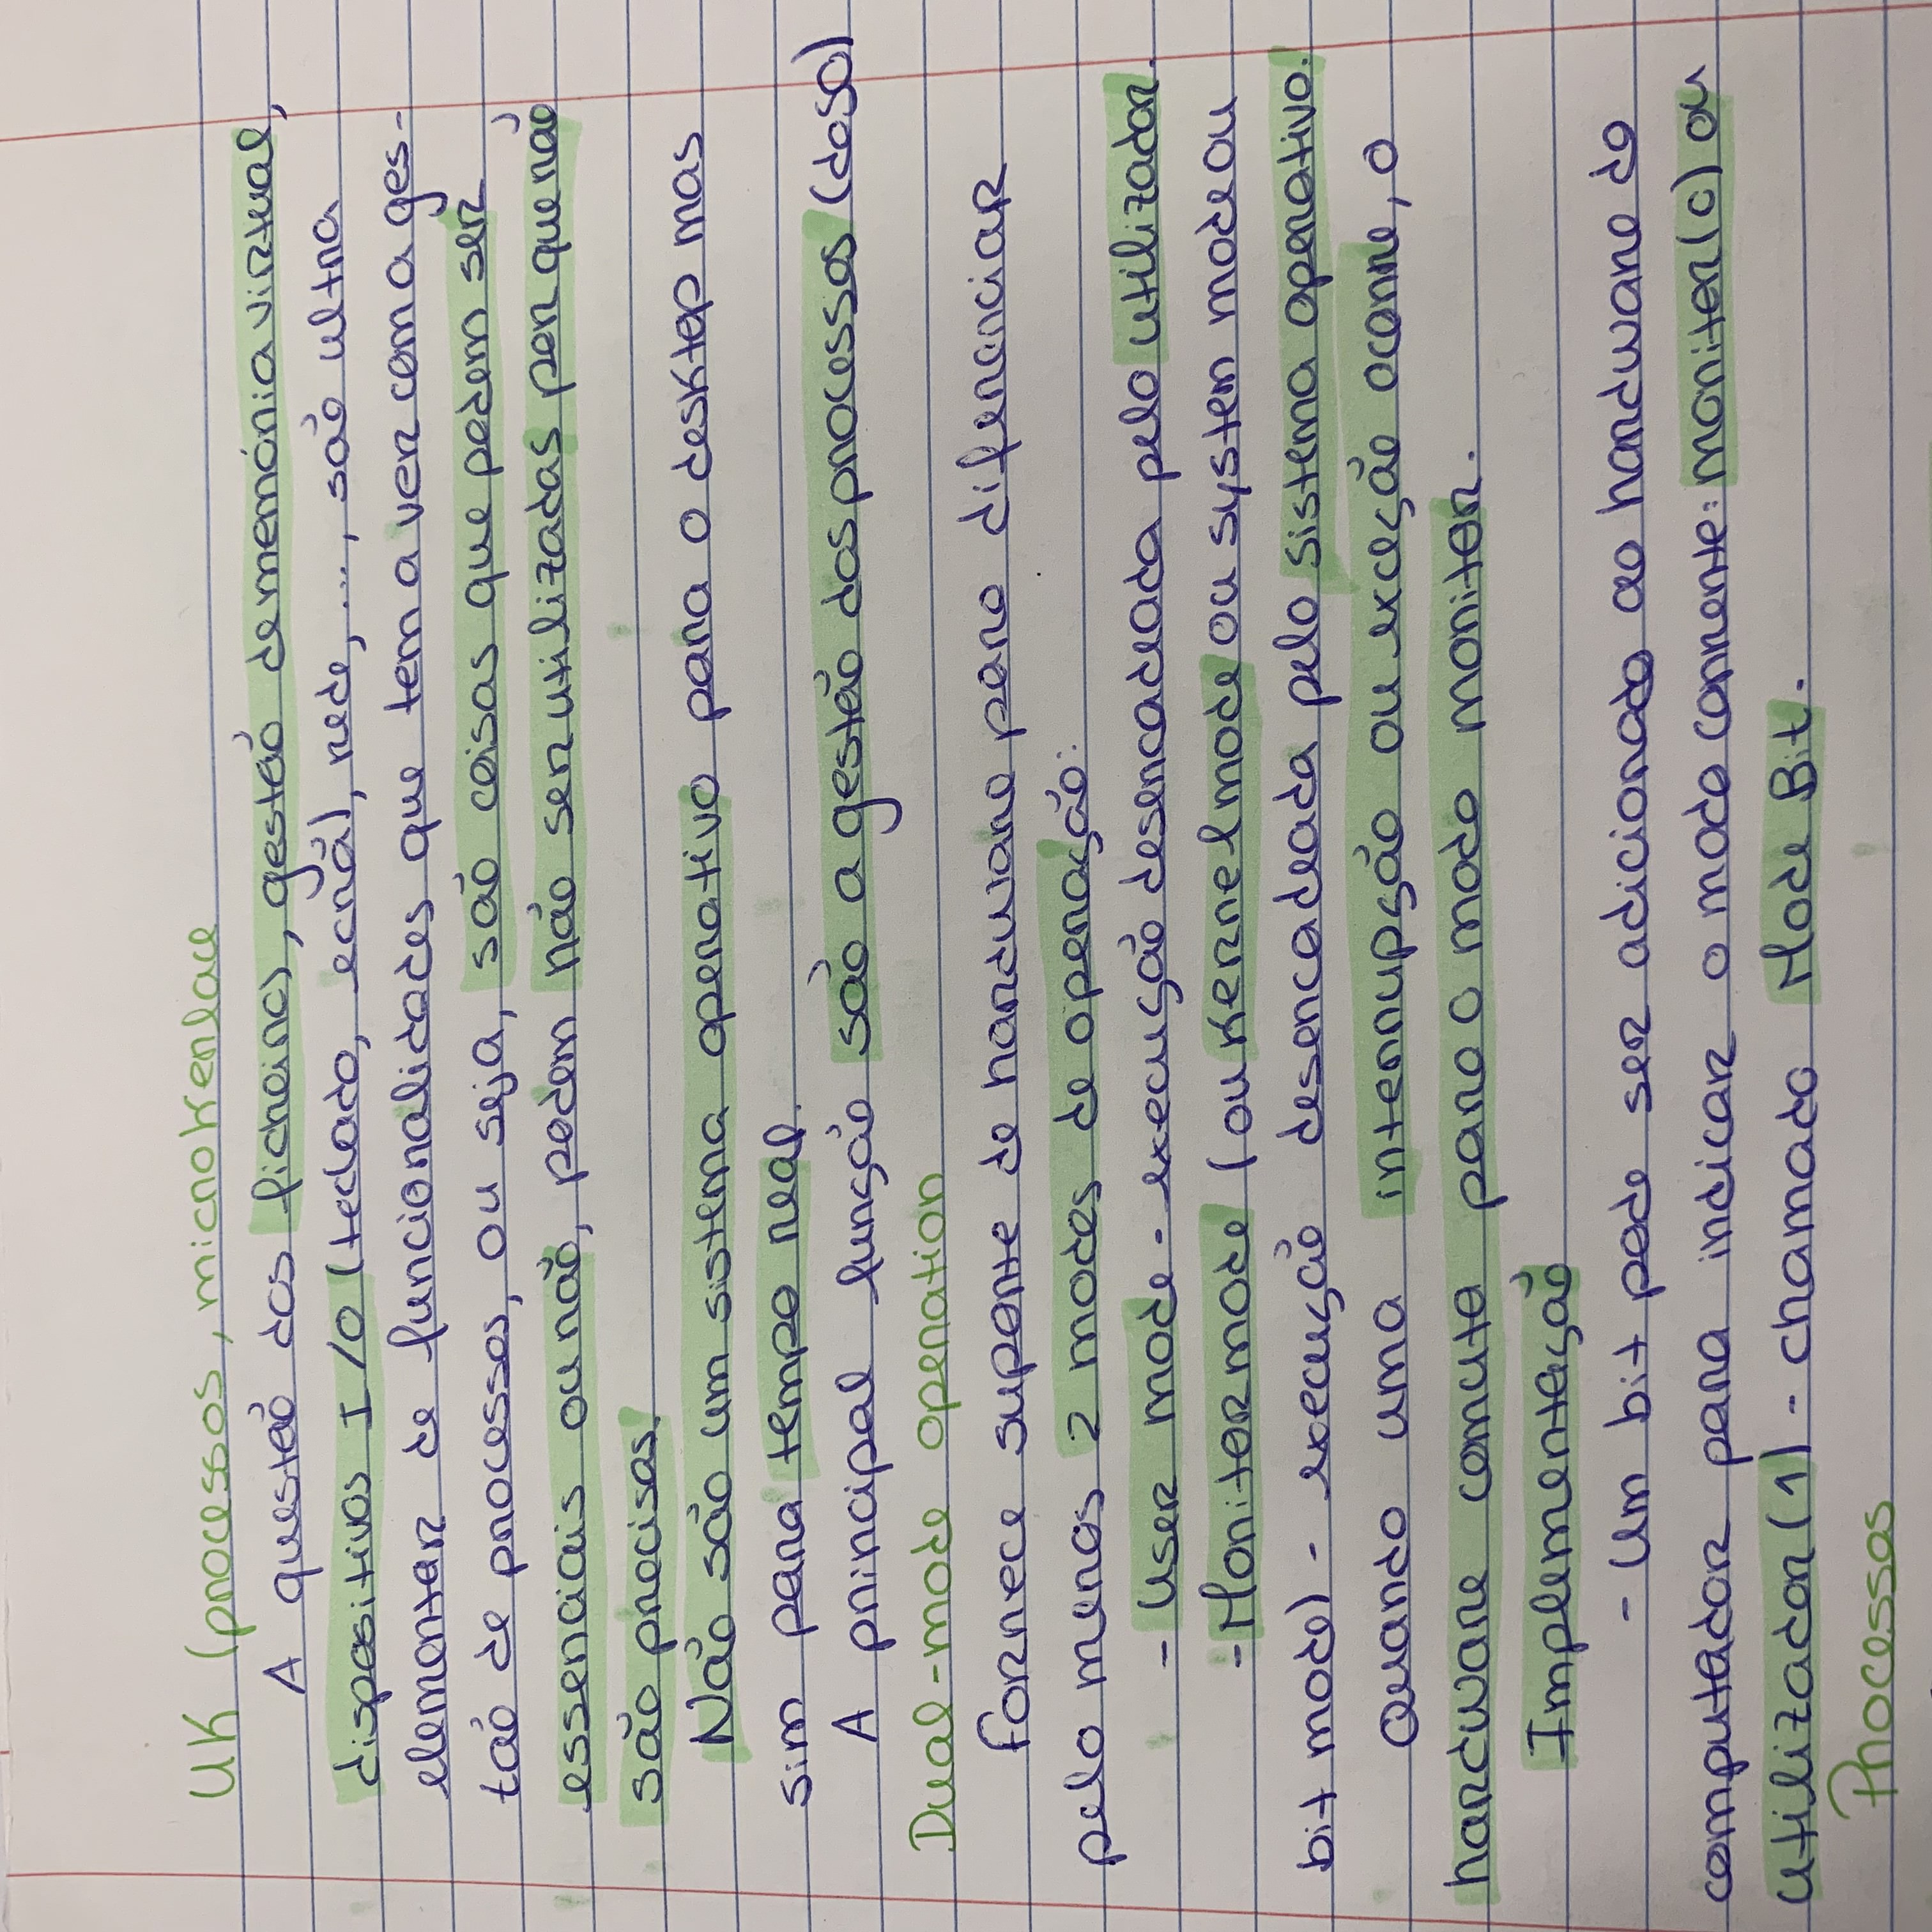 UK (processos, microkenlace
A questão dos ficheiros, gestão de memória virtual,
dispositivos I/O (teclado, ecrã), rede, ..., são ultra
elementar de funcionalidades que tem a ver com a ges-
tão de processos, ou seja, são coisas que podem ser
essenciais ou não, podem não ser utilizadas por que não
são precisas.
Não são um sistema operativo para o desktop mas
sim para tempo real.
A principal função são a gestão dos processos (do SO)
Dual-mode operation
Fornece suporte de hardware para diferenciar
pelo menos 2 modos de operação:
- User mode - execução desencadeada pelo utilizador.
- Monitor mode (ou Kernel mode ou system mode ou
bit mode) - execução desencadeada pelo sistema operativo.
Quando uma interrupção ou exceção ocorre, o
hardware comuta para o modo monitor.
Implementação
- Um bit pode ser adicionado ao hardware do
computador para indicar o modo corrente: monitor (0) ou
utilizador (1) - chamado Mode Bit.
Processos